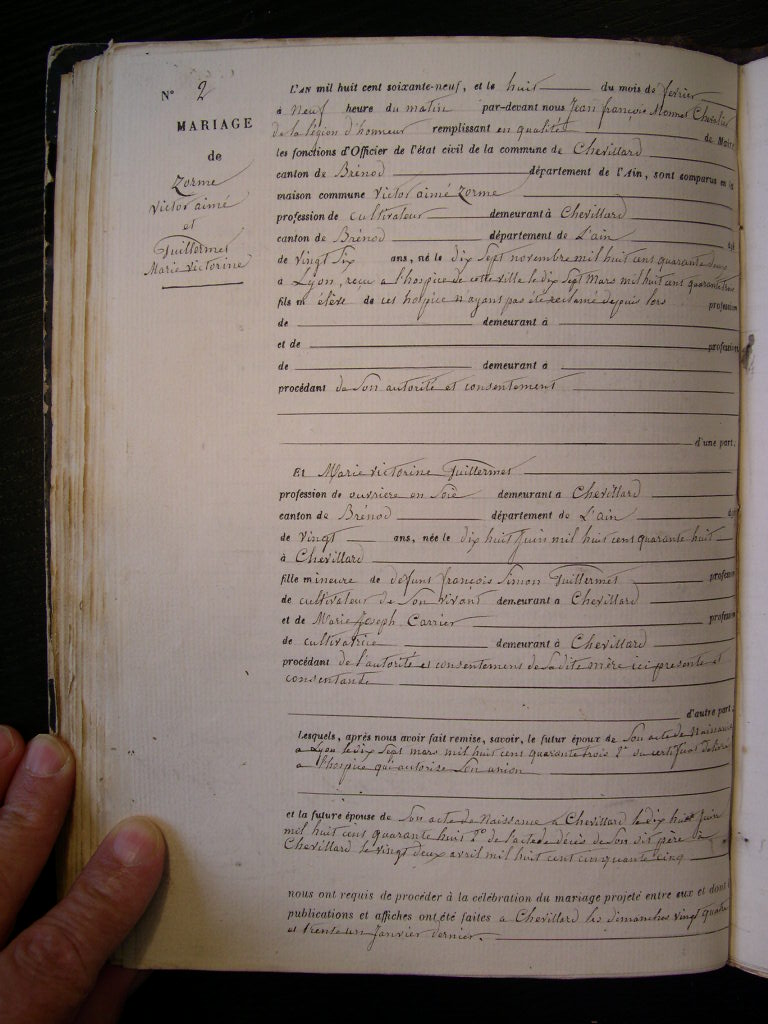 N° 2
MARIAGE
de
Zorme
Victor aimé
et
Guillermet
Marie Victorine
L'AN mil huit cent soixante-neuf, et le huit du mois de fevrier
à Neuf heure du matin par-devant nous Jean françois Monnet Chevalier
de la légion d'honneur remplissant en qualité de Maire
les fonctions d'Officier de l'état civil de la commune de Chevillard
canton de Brénod département de l'Ain, sont comparus en la
maison commune Victor aimé Zorme
profession de cultivateur demeurant à Chevillard
canton de Brénod département de L'ain âgé
de vingt six ans, né le dix sept novembre mil huit cent quarante deux
à Lyon, reçu a l'hospice de cette ville le dix sept Mars mil huit cent quarante trois
fils m élève de cet hospice n'ayant pas été reclamé depuis lors profession
de demeurant à
et de profession
de demeurant à
procédant de son autorité et consentement
d'une part.
Et Marie victorine Guillermet
profession de ouvriere en Soie demeurant à Chevillard
canton de Brénod département de L'ain âgé
de vingt ans, née le dix huit Juin mil huit cent quarante huit
à Chevillard
fille mineure de défunt françois Simon Guillermet profession
de cultivateur de son vivant demeurant à Chevillard
et de Marie Joseph Carrier profession
de cultivatrice demeurant à Chevillard
procédant de l'autorité et consentement de sa dite mère ici presente et
consentante
d'autre part;
Lesquels, après nous avoir fait remise, savoir, le futur époux de son acte de Naissance
a Lyon le dix sept mars mil huit cent quarante trois 2° du certificat délivré
a l'hospice qui autorise son union
et la future épouse de son acte de Naissance a Chevillard le dix huit Juin
mil huit cent quarante huit 2° de l'acte de décès de son dit père à
Chevillard le vingt deux avril mil huit cent cinquante cinq
nous ont requis de procéder à la célébration du mariage projeté entre eux et dont
publications et affiches ont été faites a Chevillard les dimanches vingt quatre
et trente un Janvier dernier.